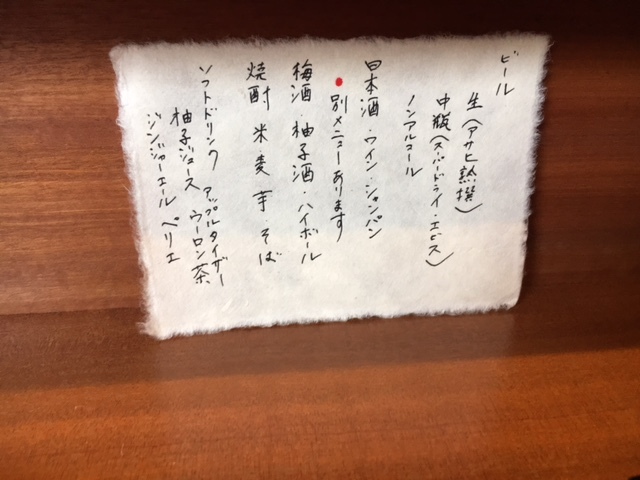 ビール
生(アサヒ熟撰)
中瓶(スーパードライ・エビス)
ノンアルコール
日本酒・ワイン・シャンパン
●別メニューあります
梅酒・柚子酒・ハイボール
焼酎 米・麦・芋・そば
ソフトドリンク アップルタイザー
柚子ジュース ウーロン茶
ジンジャーエール ペリエ